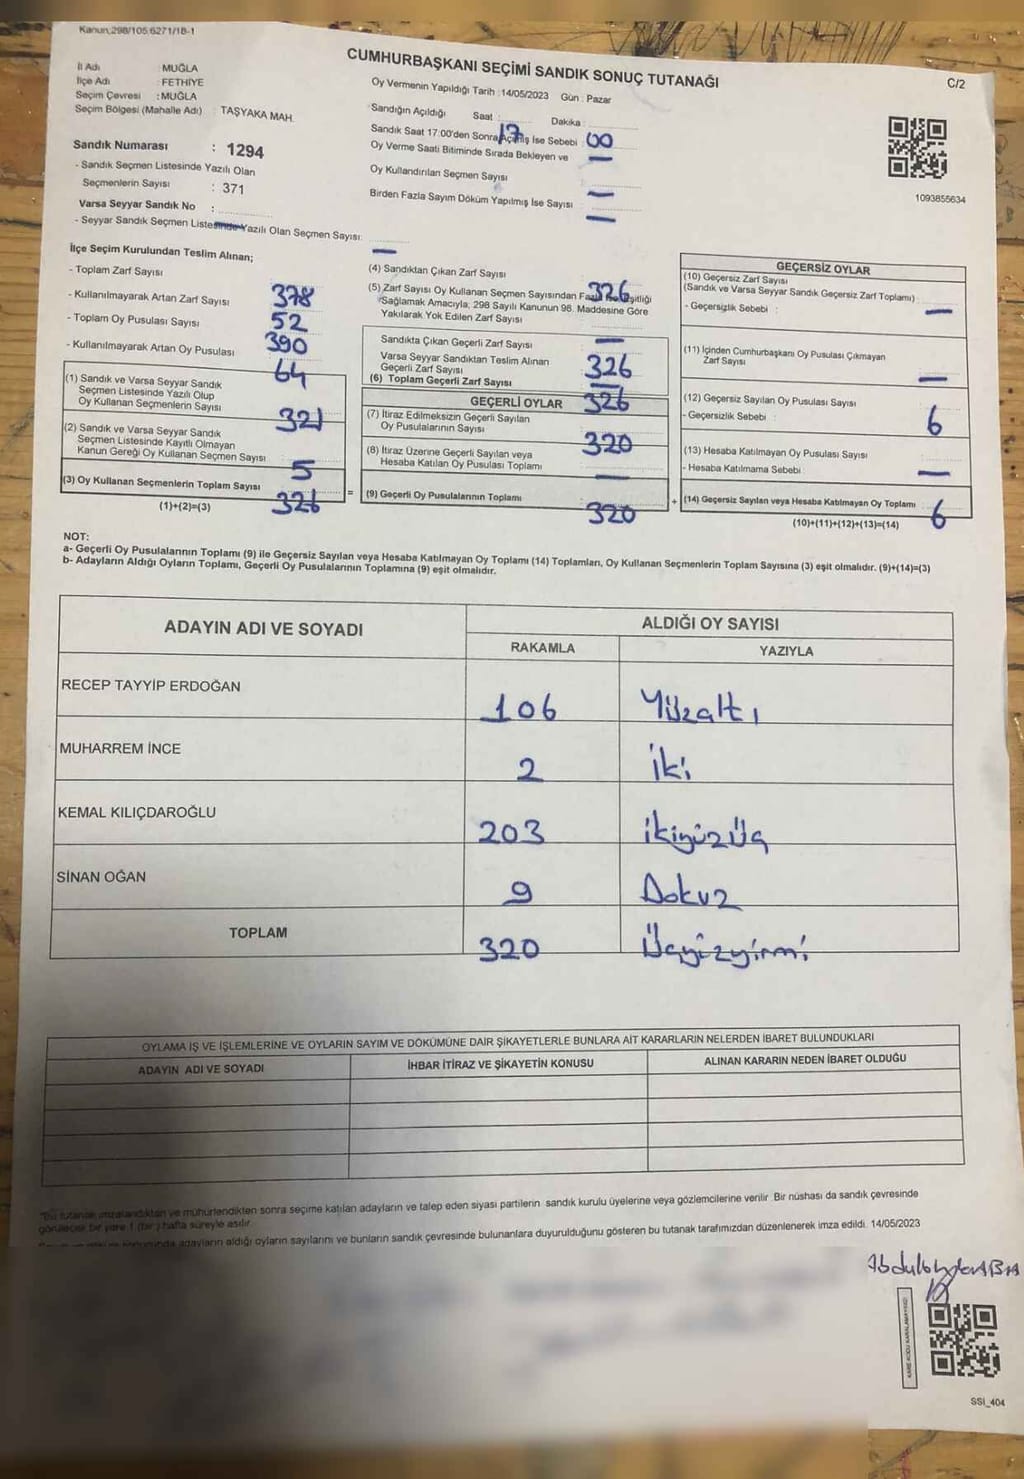 Kanun,298/105,6271/18-1
CUMHURBAŞKANI SEÇİMİ SANDIK SONUÇ TUTANAĞI
C/2
İl Adı : MUĞLA
İlçe Adı : FETHİYE
Seçim Çevresi : MUĞLA
Seçim Bölgesi (Mahalle Adı) : TAŞYAKA MAH.
Oy Vermenin Yapıldığı Tarih : 14/05/2023 Gün : Pazar
Sandığın Açıldığı Saat : 17 Dakika : 00
Sandık Saat 17:00'den Sonra Açılmış İse Sebebi : —
Oy Verme Saati Bitiminde Sırada Bekleyen ve
Oy Kullandırılan Seçmen Sayısı —
Birden Fazla Sayım Döküm Yapılmış İse Sayısı —
1093855634
Sandık Numarası : 1294
- Sandık Seçmen Listesinde Yazılı Olan
Seçmenlerin Sayısı : 371
Varsa Seyyar Sandık No : —
- Seyyar Sandık Seçmen Listesinde Yazılı Olan Seçmen Sayısı: —
İlçe Seçim Kurulundan Teslim Alınan;
- Toplam Zarf Sayısı 378
- Kullanılmayarak Artan Zarf Sayısı 52
- Toplam Oy Pusulası Sayısı 390
- Kullanılmayarak Artan Oy Pusulası 64
(1) Sandık ve Varsa Seyyar Sandık
Seçmen Listesinde Yazılı Olup
Oy Kullanan Seçmenlerin Sayısı 321
(2) Sandık ve Varsa Seyyar Sandık
Seçmen Listesinde Kayıtlı Olmayan
Kanun Gereği Oy Kullanan Seçmen Sayısı 5
(3) Oy Kullanan Seçmenlerin Toplam Sayısı 326
(1)+(2)=(3)
(4) Sandıktan Çıkan Zarf Sayısı 326
(5) Zarf Sayısı Oy Kullanan Seçmen Sayısından Fazla İse, Eşitliği
Sağlamak Amacıyla, 298 Sayılı Kanunun 98. Maddesine Göre
Yakılarak Yok Edilen Zarf Sayısı —
Sandıkta Çıkan Geçerli Zarf Sayısı 326
Varsa Seyyar Sandıktan Teslim Alınan
Geçerli Zarf Sayısı —
(6) Toplam Geçerli Zarf Sayısı 326
GEÇERLİ OYLAR
(7) İtiraz Edilmeksizin Geçerli Sayılan
Oy Pusulalarının Sayısı 320
(8) İtiraz Üzerine Geçerli Sayılan veya
Hesaba Katılan Oy Pusulası Toplamı —
= (9) Geçerli Oy Pusulalarının Toplamı 320
GEÇERSİZ OYLAR
(10) Geçersiz Zarf Sayısı
(Sandık ve Varsa Seyyar Sandık Geçersiz Zarf Toplamı)
- Geçersizlik Sebebi : —
(11) İçinden Cumhurbaşkanı Oy Pusulası Çıkmayan
Zarf Sayısı —
(12) Geçersiz Sayılan Oy Pusulası Sayısı 6
- Geçersizlik Sebebi :
(13) Hesaba Katılmayan Oy Pusulası Sayısı —
- Hesaba Katılmama Sebebi :
+ (14) Geçersiz Sayılan veya Hesaba Katılmayan Oy Toplamı 6
(10)+(11)+(12)+(13)=(14)
NOT:
a- Geçerli Oy Pusulalarının Toplamı (9) ile Geçersiz Sayılan veya Hesaba Katılmayan Oy Toplamı (14) Toplamları, Oy Kullanan Seçmenlerin Toplam Sayısına (3) eşit olmalıdır. (9)+(14)=(3)
b- Adayların Aldığı Oyların Toplamı, Geçerli Oy Pusulalarının Toplamına (9) eşit olmalıdır.
ADAYIN ADI VE SOYADI ALDIĞI OY SAYISI
RAKAMLA YAZIYLA
RECEP TAYYİP ERDOĞAN 106 Yüzaltı
MUHARREM İNCE 2 İki
KEMAL KILIÇDAROĞLU 203 İkiyüzüç
SİNAN OĞAN 9 Dokuz
TOPLAM 320 Üçyüzyirmi
OYLAMA İŞ VE İŞLEMLERİNE VE OYLARIN SAYIM VE DÖKÜMÜNE DAİR ŞİKAYETLERLE BUNLARA AİT KARARLARIN NELERDEN İBARET BULUNDUKLARI
ADAYIN ADI VE SOYADI İHBAR İTİRAZ VE ŞİKAYETİN KONUSU ALINAN KARARIN NEDEN İBARET OLDUĞU
*Bu tutanak imzalandıktan ve mühürlendikten sonra seçime katılan adayların ve talep eden siyasi partilerin sandık kurulu üyelerine veya gözlemcilerine verilir. Bir nüshası da sandık çevresinde
görülecek bir yere 1 (bir) hafta süreyle asılır.
adayların aldığı oyların sayılarını ve bunların sandık çevresinde bulunanlara duyurulduğunu gösteren bu tutanak tarafımızdan düzenlenerek imza edildi. 14/05/2023
KARE KODU KARALAMAYINIZ!
SSİ_404